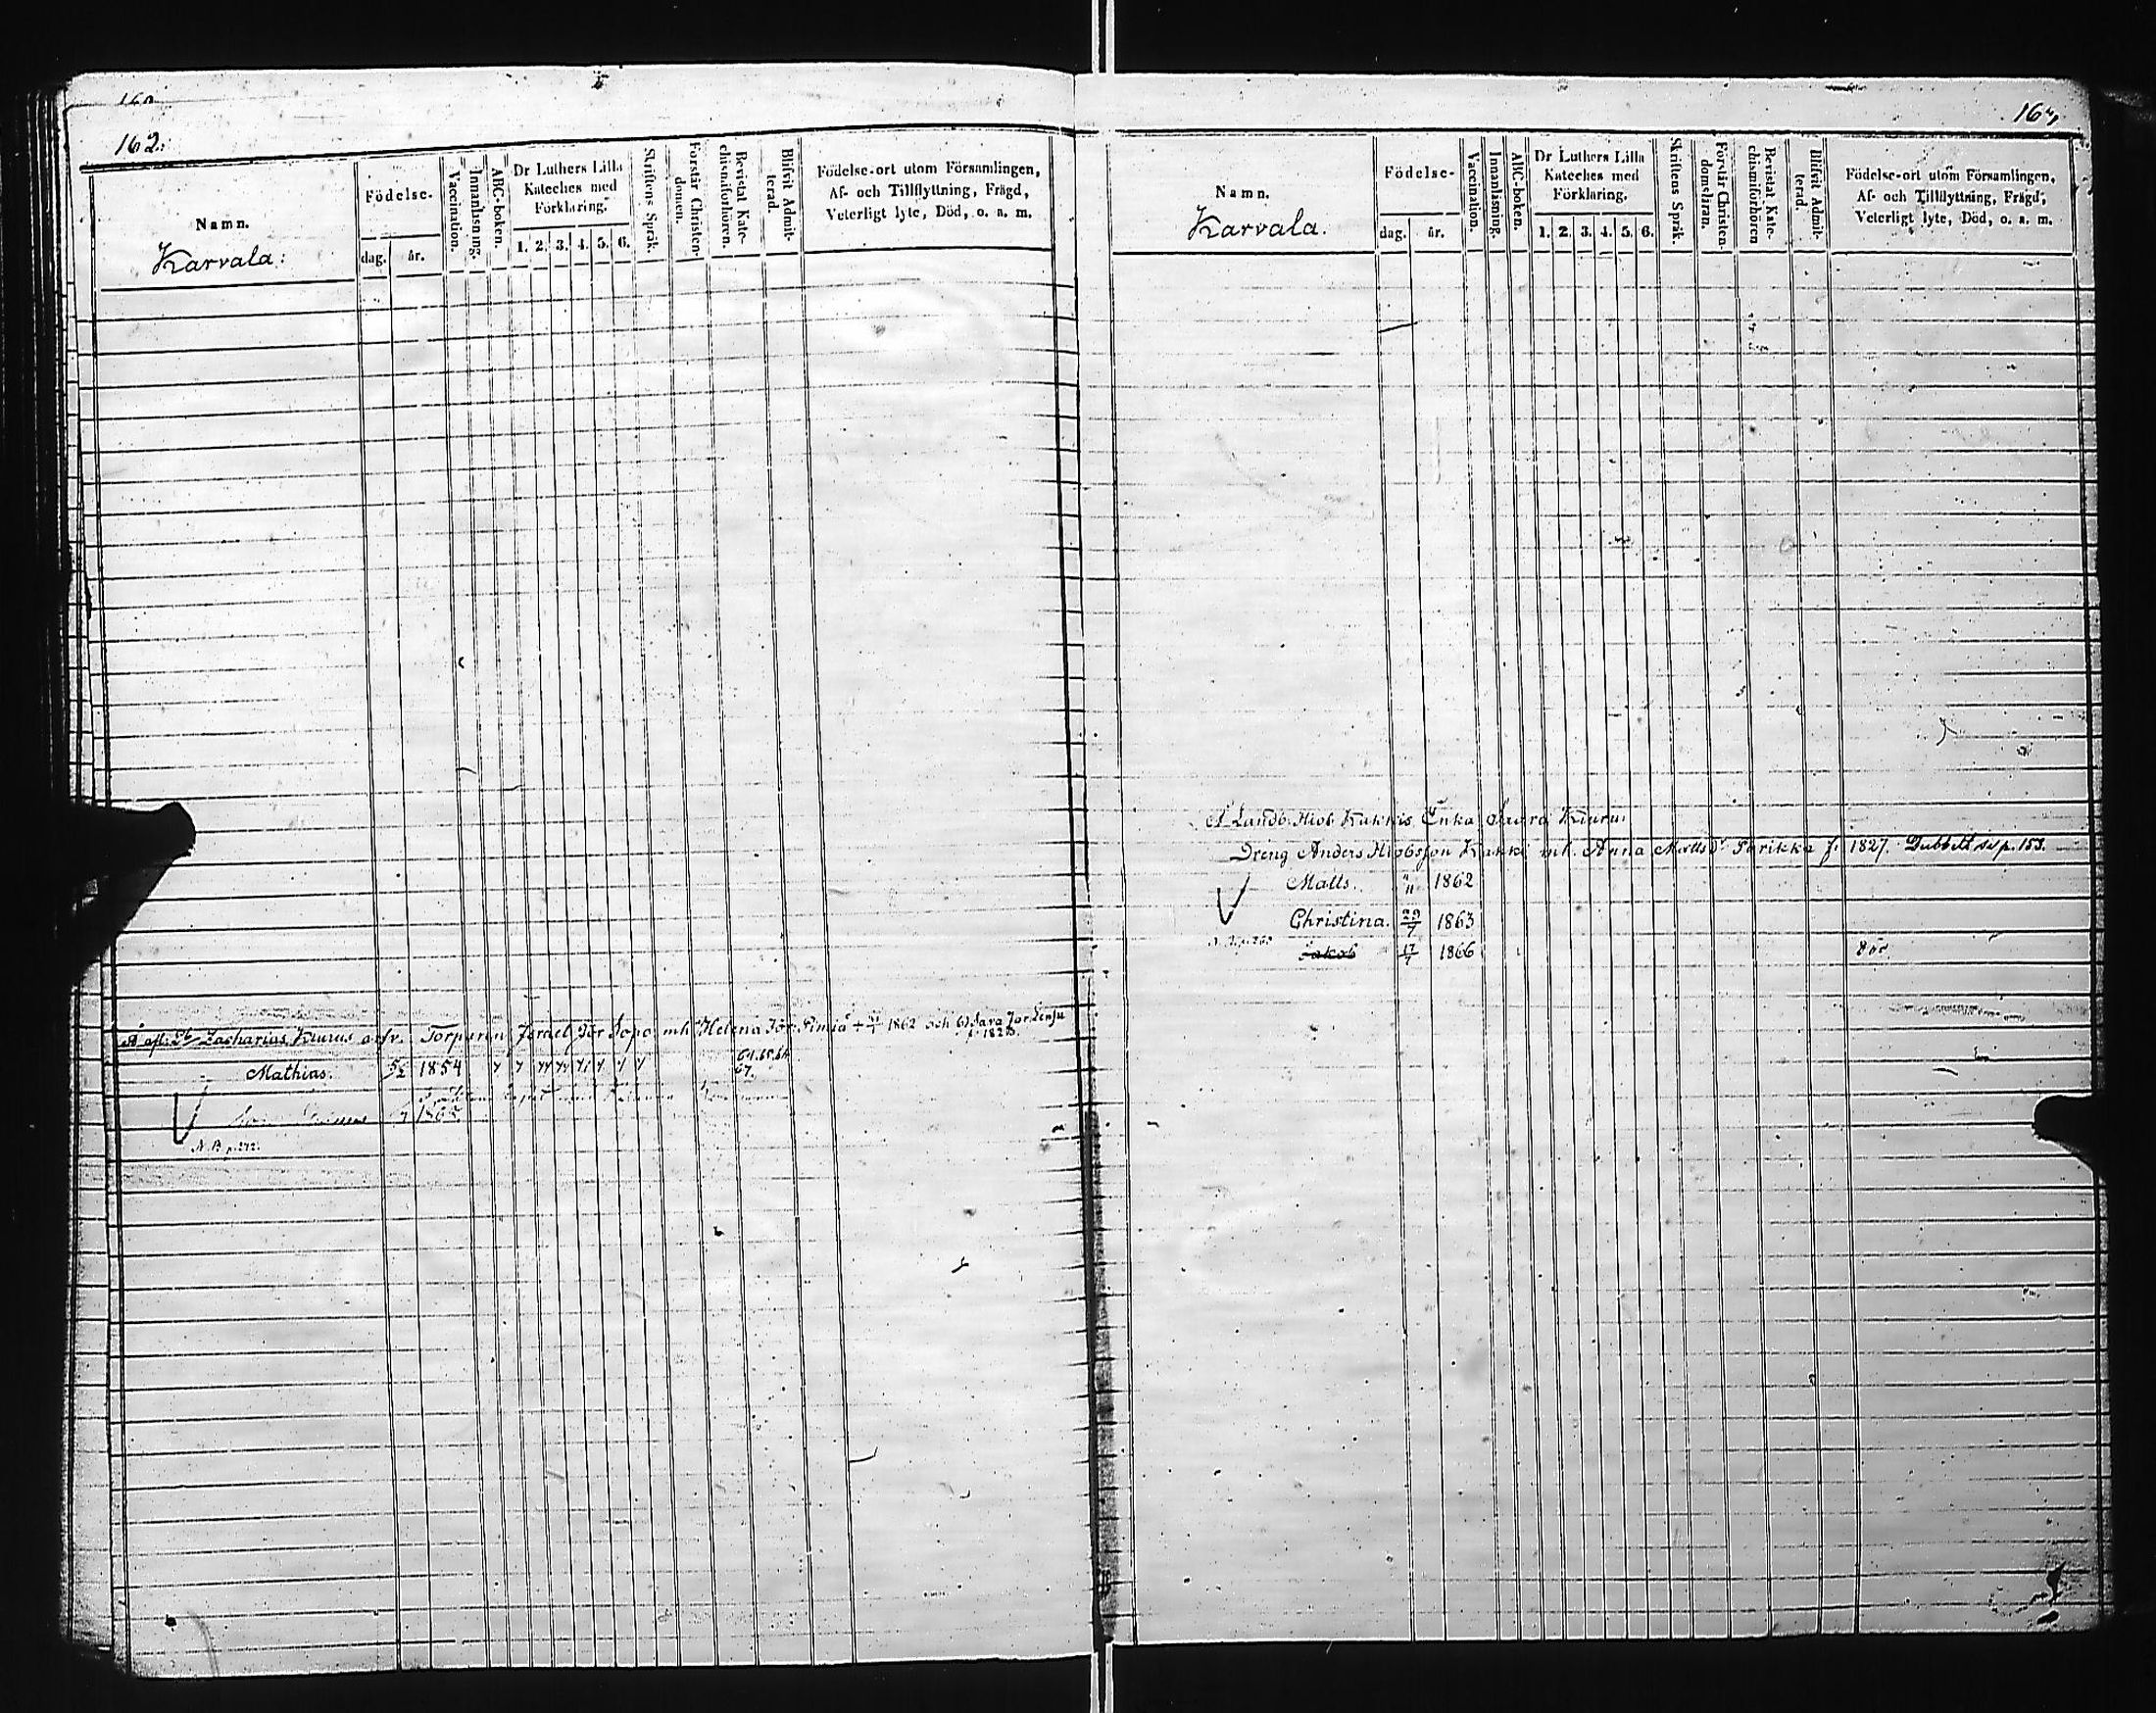 162.
Namn.
Karvala:
Födelse-
dag. år.
Vaccination.
Innanläsning.
ABC-boken.
Dr Luthers Lilla
Kateches med
Förklaring.
1. 2. 3. 4. 5. 6.
Skriftens Språk.
Förstår Christen-
domen.
Bevistat Kate-
chismiförhören.
Blifvit Admit-
terad.
Födelse-ort utom Församlingen,
Af- och Tillflyttning, Frägd,
Veterligt lyte, Död, o. s. m.
Zacharias Kiurus Torparen Israel Jör. Sopo mh Helena Jör. Pimiä + 1862 och Sara Jör.
f. 182
Mathias. 1854 64.65.66
67.
N. B. p. 272.
Namn.
Karvala.
Födelse-
dag. år.
Vaccination.
Innanläsning.
ABC-boken.
Dr Luthers Lilla
Kateches med
Förklaring.
1. 2. 3. 4. 5. 6.
Skriftens Språk.
Förstår Christen-
domsläran.
Bevistat Kate-
chismiförhören
Blifvit Admit-
terad.
Födelse-ort utom Församlingen,
Af- och Tillflyttning, Frägd,
Veterligt lyte, Död, o. s. m.
Landb. Hiob Kukkis Enka Saara Kiurus
Dreng Anders Hiobsson Kukki mh. Anna Matts Dr f. 1827. Dubbelt p. 153.
Matts. 1862
Christina. 29/7 1863
Jakob 17/7 1866